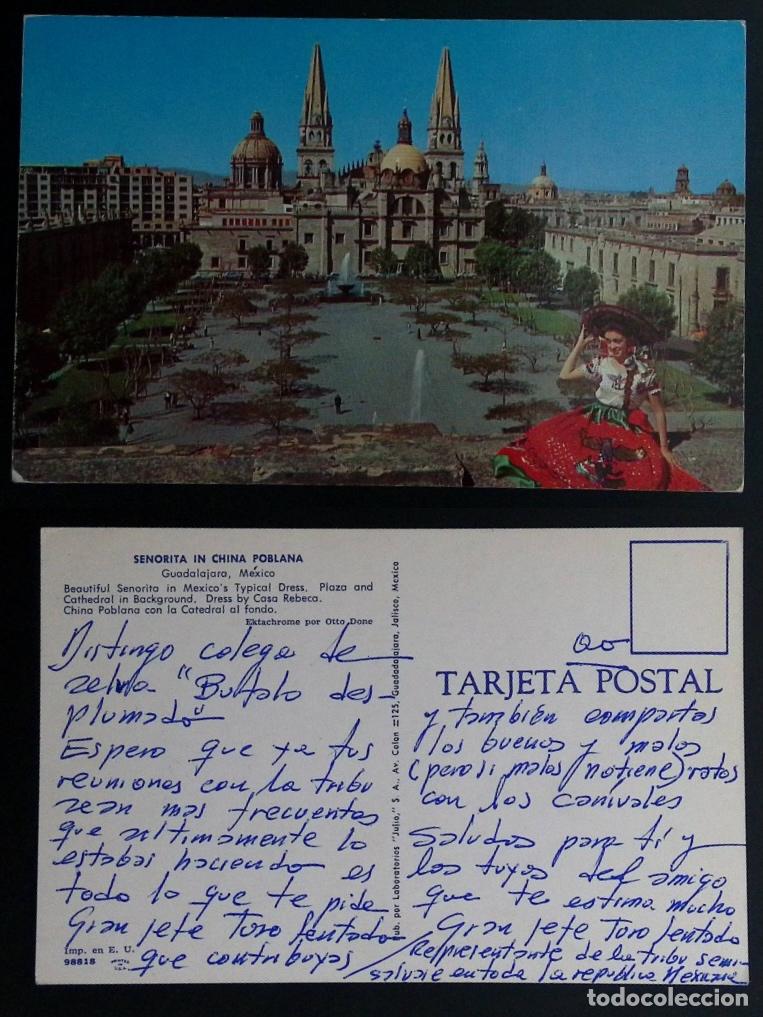 SENORITA IN CHINA POBLANA
Guadalajara, México
Beautiful Senorita in Mexico's Typical Dress. Plaza and
Cathedral in Background. Dress by Casa Rebeca.
China Poblana con la Catedral al fondo.
Ektachrome por Otto Done
Distingo colega de
selva "Bufalo des-
plumado"
Espero que ya tus
reuniones con la tribu
sean mas frecuentes
que ultimamente lo
estabas haciendo es
todo lo que te pide
Gran Jefe Toro Sentado
que contribuyas
Imp. en E. U.
98818
Pub. por Laboratorios "Julio," S. A., Av. Colon =125, Guadalajara, Jalisco, Mexico
TARJETA POSTAL
y también compartas
los buenos y malos
(pero si malos (no tiene) ratos
con los canivales
Saludos para tí y
los tuyos del amigo
que te estima mucho
Gran Jefe Toro Sentado
Representante de la tribu semi-
salvaje en toda la republica Mexicana
todocoleccion